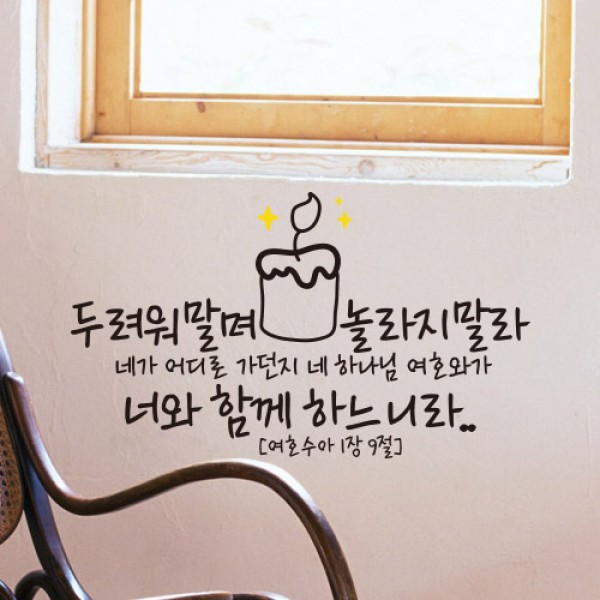 두려워말며 놀라지말라
네가 어디로 가던지 네 하나님 여호와가
너와 함께 하느니라..
[여호수아 1장 9절]